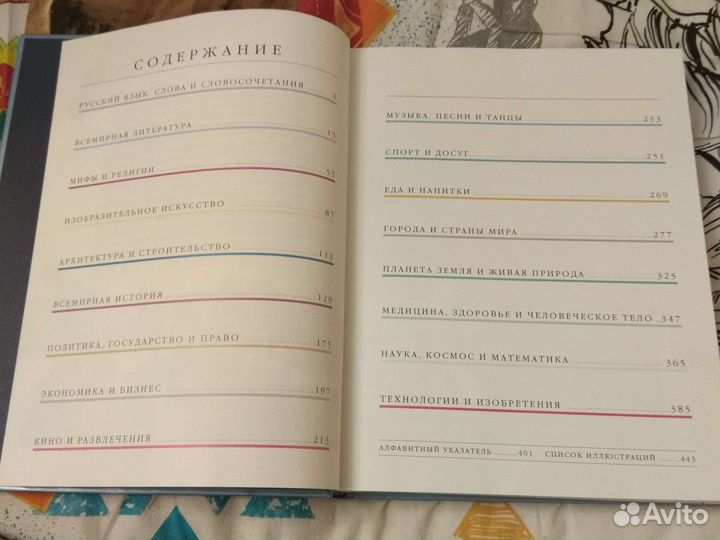 СОДЕРЖАНИЕ
РУССКИЙ ЯЗЫК: СЛОВА И СЛОВОСОЧЕТАНИЯ 1
ВСЕМИРНАЯ ЛИТЕРАТУРА 15
МИФЫ И РЕЛИГИИ 55
ИЗОБРАЗИТЕЛЬНОЕ ИСКУССТВО 87
АРХИТЕКТУРА И СТРОИТЕЛЬСТВО 113
ВСЕМИРНАЯ ИСТОРИЯ 129
ПОЛИТИКА, ГОСУДАРСТВО И ПРАВО 175
ЭКОНОМИКА И БИЗНЕС 197
КИНО И РАЗВЛЕЧЕНИЯ 213
МУЗЫКА, ПЕСНИ И ТАНЦЫ 233
СПОРТ И ДОСУГ 251
ЕДА И НАПИТКИ 269
ГОРОДА И СТРАНЫ МИРА 277
ПЛАНЕТА ЗЕМЛЯ И ЖИВАЯ ПРИРОДА 325
МЕДИЦИНА, ЗДОРОВЬЕ И ЧЕЛОВЕЧЕСКОЕ ТЕЛО 347
НАУКА, КОСМОС И МАТЕМАТИКА 365
ТЕХНОЛОГИИ И ИЗОБРЕТЕНИЯ 385
АЛФАВИТНЫЙ УКАЗАТЕЛЬ 401 СПИСОК ИЛЛЮСТРАЦИЙ 443
Avito